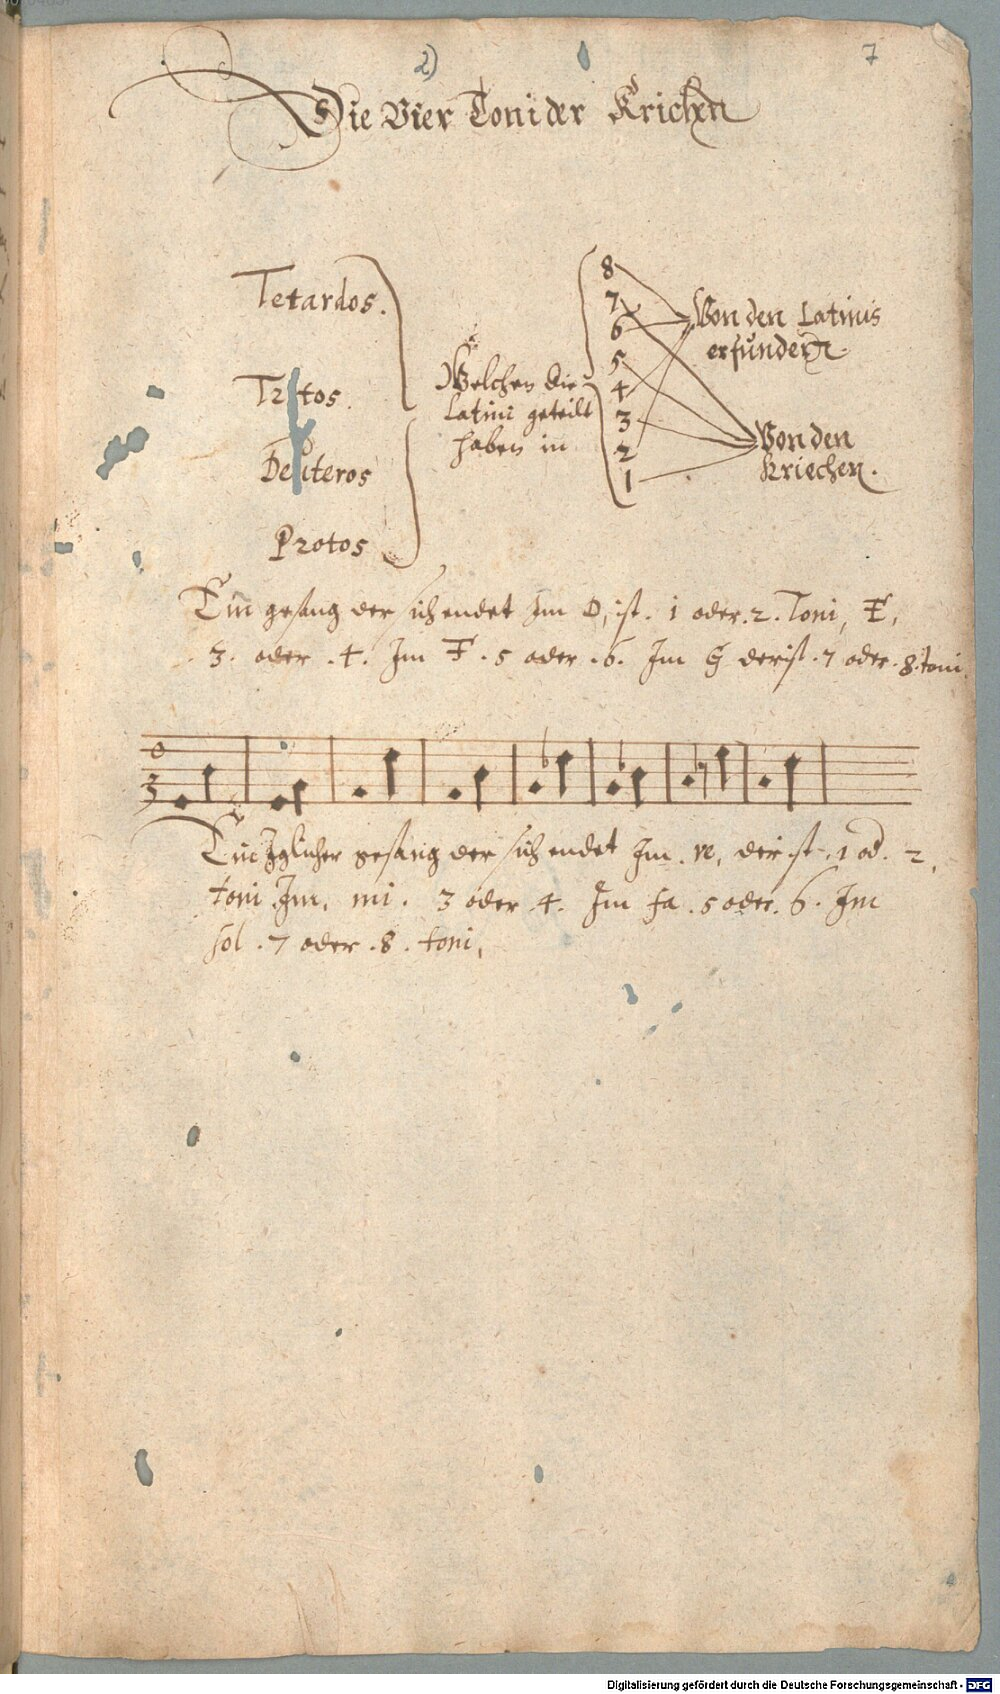 2)
7
Die Vier Toni der Krichen
Tetardos.
Tritos.
Deuteros
Protos
Welchen die
Latini geteilt
haben in
8
7
6
5
4
3
2
1
Von den Latinis
erfunden.
Von den
Kriechen.
Ein gesang der sich endet Im D, ist. 1 oder. 2. Toni, E,
3. oder .4. Im F. 5 oder .6. Im G der ist .7 oder .8. toni
Ein Jglicher gesang der sich endet Im. re, der ist. 1 od. 2.
toni. Im. mi. 3 oder 4. Im fa. 5 oder. 6. Im
sol. 7 oder .8. toni.
Digitalisierung gefördert durch die Deutsche Forschungsgemeinschaft - DFG